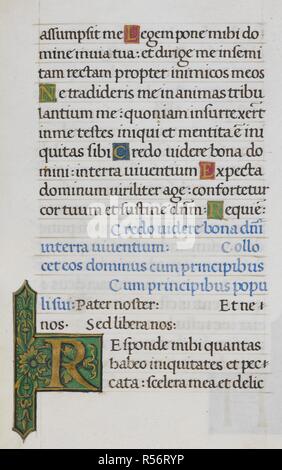 assumpsit me Legem pone mihi do
mine in via tua: et dirige me in semi
tam rectam propter inimicos meos
Ne tradideris me in animas tribu
lantium me: quoniam insurrexerȓt
in me testes iniqui et mentita ē ini
quitas sibi Credo videre bona do
mini: in terra viventium Expecta
dominum viriliter age: confortetur
cor tuum et sustine dn̄m Requiē:
Credo videre bona dn̄i
in terra viventium: Collo
cet eos dominus cum principibus
Cum principibus popu
li sui: Pater noster: Et ne
nos: Sed libera nos:
Responde mihi quantas
habeo iniquitates et pec
cata: scelera mea et delic
alamy
Image ID: R56RYP
www.alamy.com